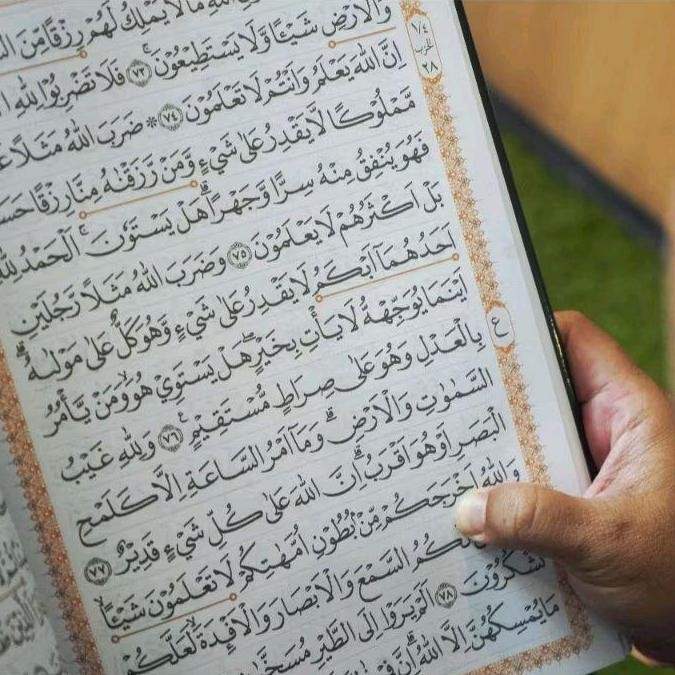 مَا لَا يَمْلِكُ لَهُمْ رِزْقًا مِّنَ
وَالْاَرْضِ شَيْـًٔا وَّلَا يَسْتَطِيْعُوْنَۚ ۝٧٣ فَلَا تَضْرِبُوْا لِلّٰهِ
اِنَّ اللّٰهَ يَعْلَمُ وَاَنْتُمْ لَا تَعْلَمُوْنَ ۝٧٤ * ضَرَبَ اللّٰهُ مَثَلًا
مَّمْلُوْكًا لَّا يَقْدِرُ عَلٰى شَيْءٍ وَّمَنْ رَّزَقْنٰهُ مِنَّا رِزْقًا
فَهُوَ يُنْفِقُ مِنْهُ سِرًّا وَّجَهْرًاۗ هَلْ يَسْتَوٗنَۚ اَلْحَمْدُ لِلّٰهِ
بَلْ اَكْثَرُهُمْ لَا يَعْلَمُوْنَ ۝٧٥ وَضَرَبَ اللّٰهُ مَثَلًا رَّجُلَيْنِ
اَحَدُهُمَآ اَبْكَمُ لَا يَقْدِرُ عَلٰى شَيْءٍ وَّهُوَ كَلٌّ عَلٰى مَوْلٰىهُۗ
اَيْنَمَا يُوَجِّهْهُّ لَا يَأْتِ بِخَيْرٍۖ هَلْ يَسْتَوِيْ هُوَۙ وَمَنْ يَّأْمُرُ
بِالْعَدْلِ وَهُوَ عَلٰى صِرَاطٍ مُّسْتَقِيْمٍ ࣖ ۝٧٦ وَلِلّٰهِ غَيْبُ
السَّمٰوٰتِ وَالْاَرْضِۗ وَمَآ اَمْرُ السَّاعَةِ اِلَّا كَلَمْحِ
الْبَصَرِ اَوْ هُوَ اَقْرَبُۗ اِنَّ اللّٰهَ عَلٰى كُلِّ شَيْءٍ قَدِيْرٌ ۝٧٧
وَاللّٰهُ اَخْرَجَكُمْ مِّنْۢ بُطُوْنِ اُمَّهٰتِكُمْ لَا تَعْلَمُوْنَ شَيْـًٔاۙ
لَكُمُ السَّمْعَ وَالْاَبْصَارَ وَالْاَفْـِٕدَةَۙ لَعَلَّكُمْ
تَشْكُرُوْنَ ۝٧٨ اَلَمْ يَرَوْا اِلَى الطَّيْرِ
مَا يُمْسِكُهُنَّ اِلَّا اللّٰهُۗ اِنَّ فِيْ
١/٤
الحزب
٢٨
ع